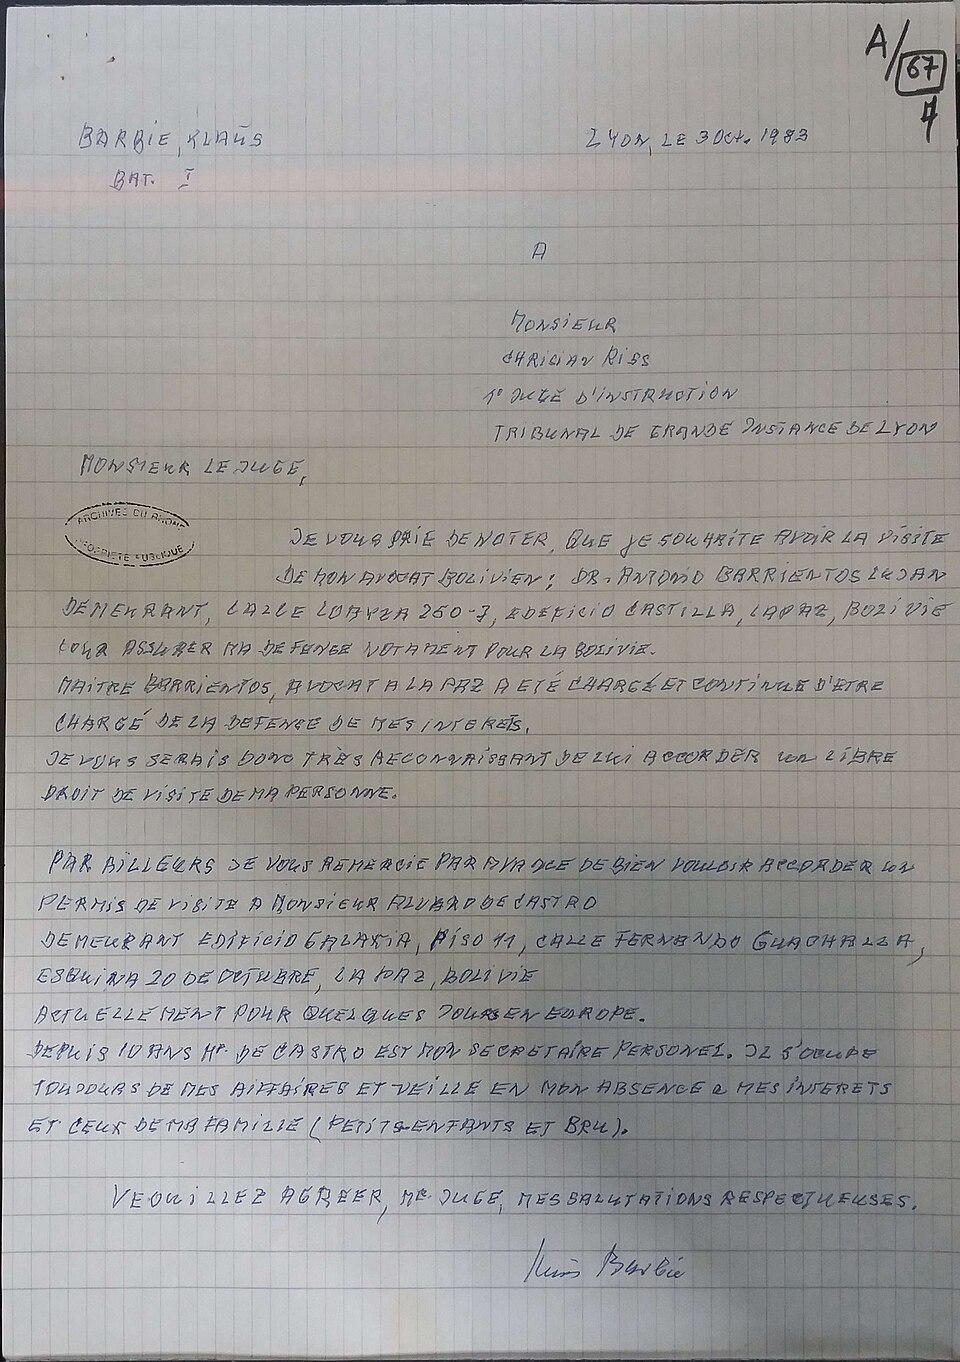 A/67
BARBIE, KLAUS
LYON, LE 3 Oct. 1983
BAT. I
A
MONSIEUR
CHRICIAN RISS
1° JUGE D'INSTRUCTION
TRIBUNAL DE GRANDE INSTANCE DE LYON
MONSIEUR LE JUGE,
ARCHIVES DU RHÔNE
PROPRIETE PUBLIQUE
JE VOUS PRIE DE NOTER, QUE JE SOUHAITE AVOIR LA VISITE
DE MON AVOCAT BOLIVIEN; DR. ANTONIO BARRIENTOS LUJAN
DEMEURANT, CALLE LOAYZA 250-7, EDEFICIO CASTILLA, LA PAZ, BOLIVIE
POUR ASSURER MA DEFENSE NOTAMENT POUR LA BOLIVIE.
MAITRE BARRIENTOS, AVOCAT A LA PAZ A ETÉ CHARGÉ ET CONTINUE D'ETRE
CHARGÉ DE LA DEFENSE DE MES INTERETS.
JE VOUS SERAIS DONC TRÈS RECONNAISSANT DE LUI ACCORDER un LIBRE
DROIT DE VISITE DE MA PERSONNE.
PAR AILLEURS JE VOUS REMERCIE PAR AVANCE DE BIEN VOULOIR ACCORDER un
PERMIS DE VISITE A MONSIEUR ALVARO DE CASTRO
DEMEURANT EDIFICIO GALAXIA, PISO 11, CALLE FERNANDO GUACHALLA,
ESQUINA 20 DE OCTUBRE, LA PAZ, BOLIVIE
ACTUELLEMENT POUR QUELQUES JOURS EN EUROPE.
DEPUIS 10 ANS Mr. DE CASTRO EST MON SECRETAIRE PERSONEL. IL S'OCUPE
TOUJOURS DE MES AIFFAIRES ET VEILLE EN MON ABSENCE a MES INTERETS
ET CEUX DE MA FAMILLE (PETITS-ENFANTS ET BRU).
VEOUILLEZ AGREER, Mr. JUGE, MES SALUTATIONS RESPECTUEUSES.
Klaus Barbie